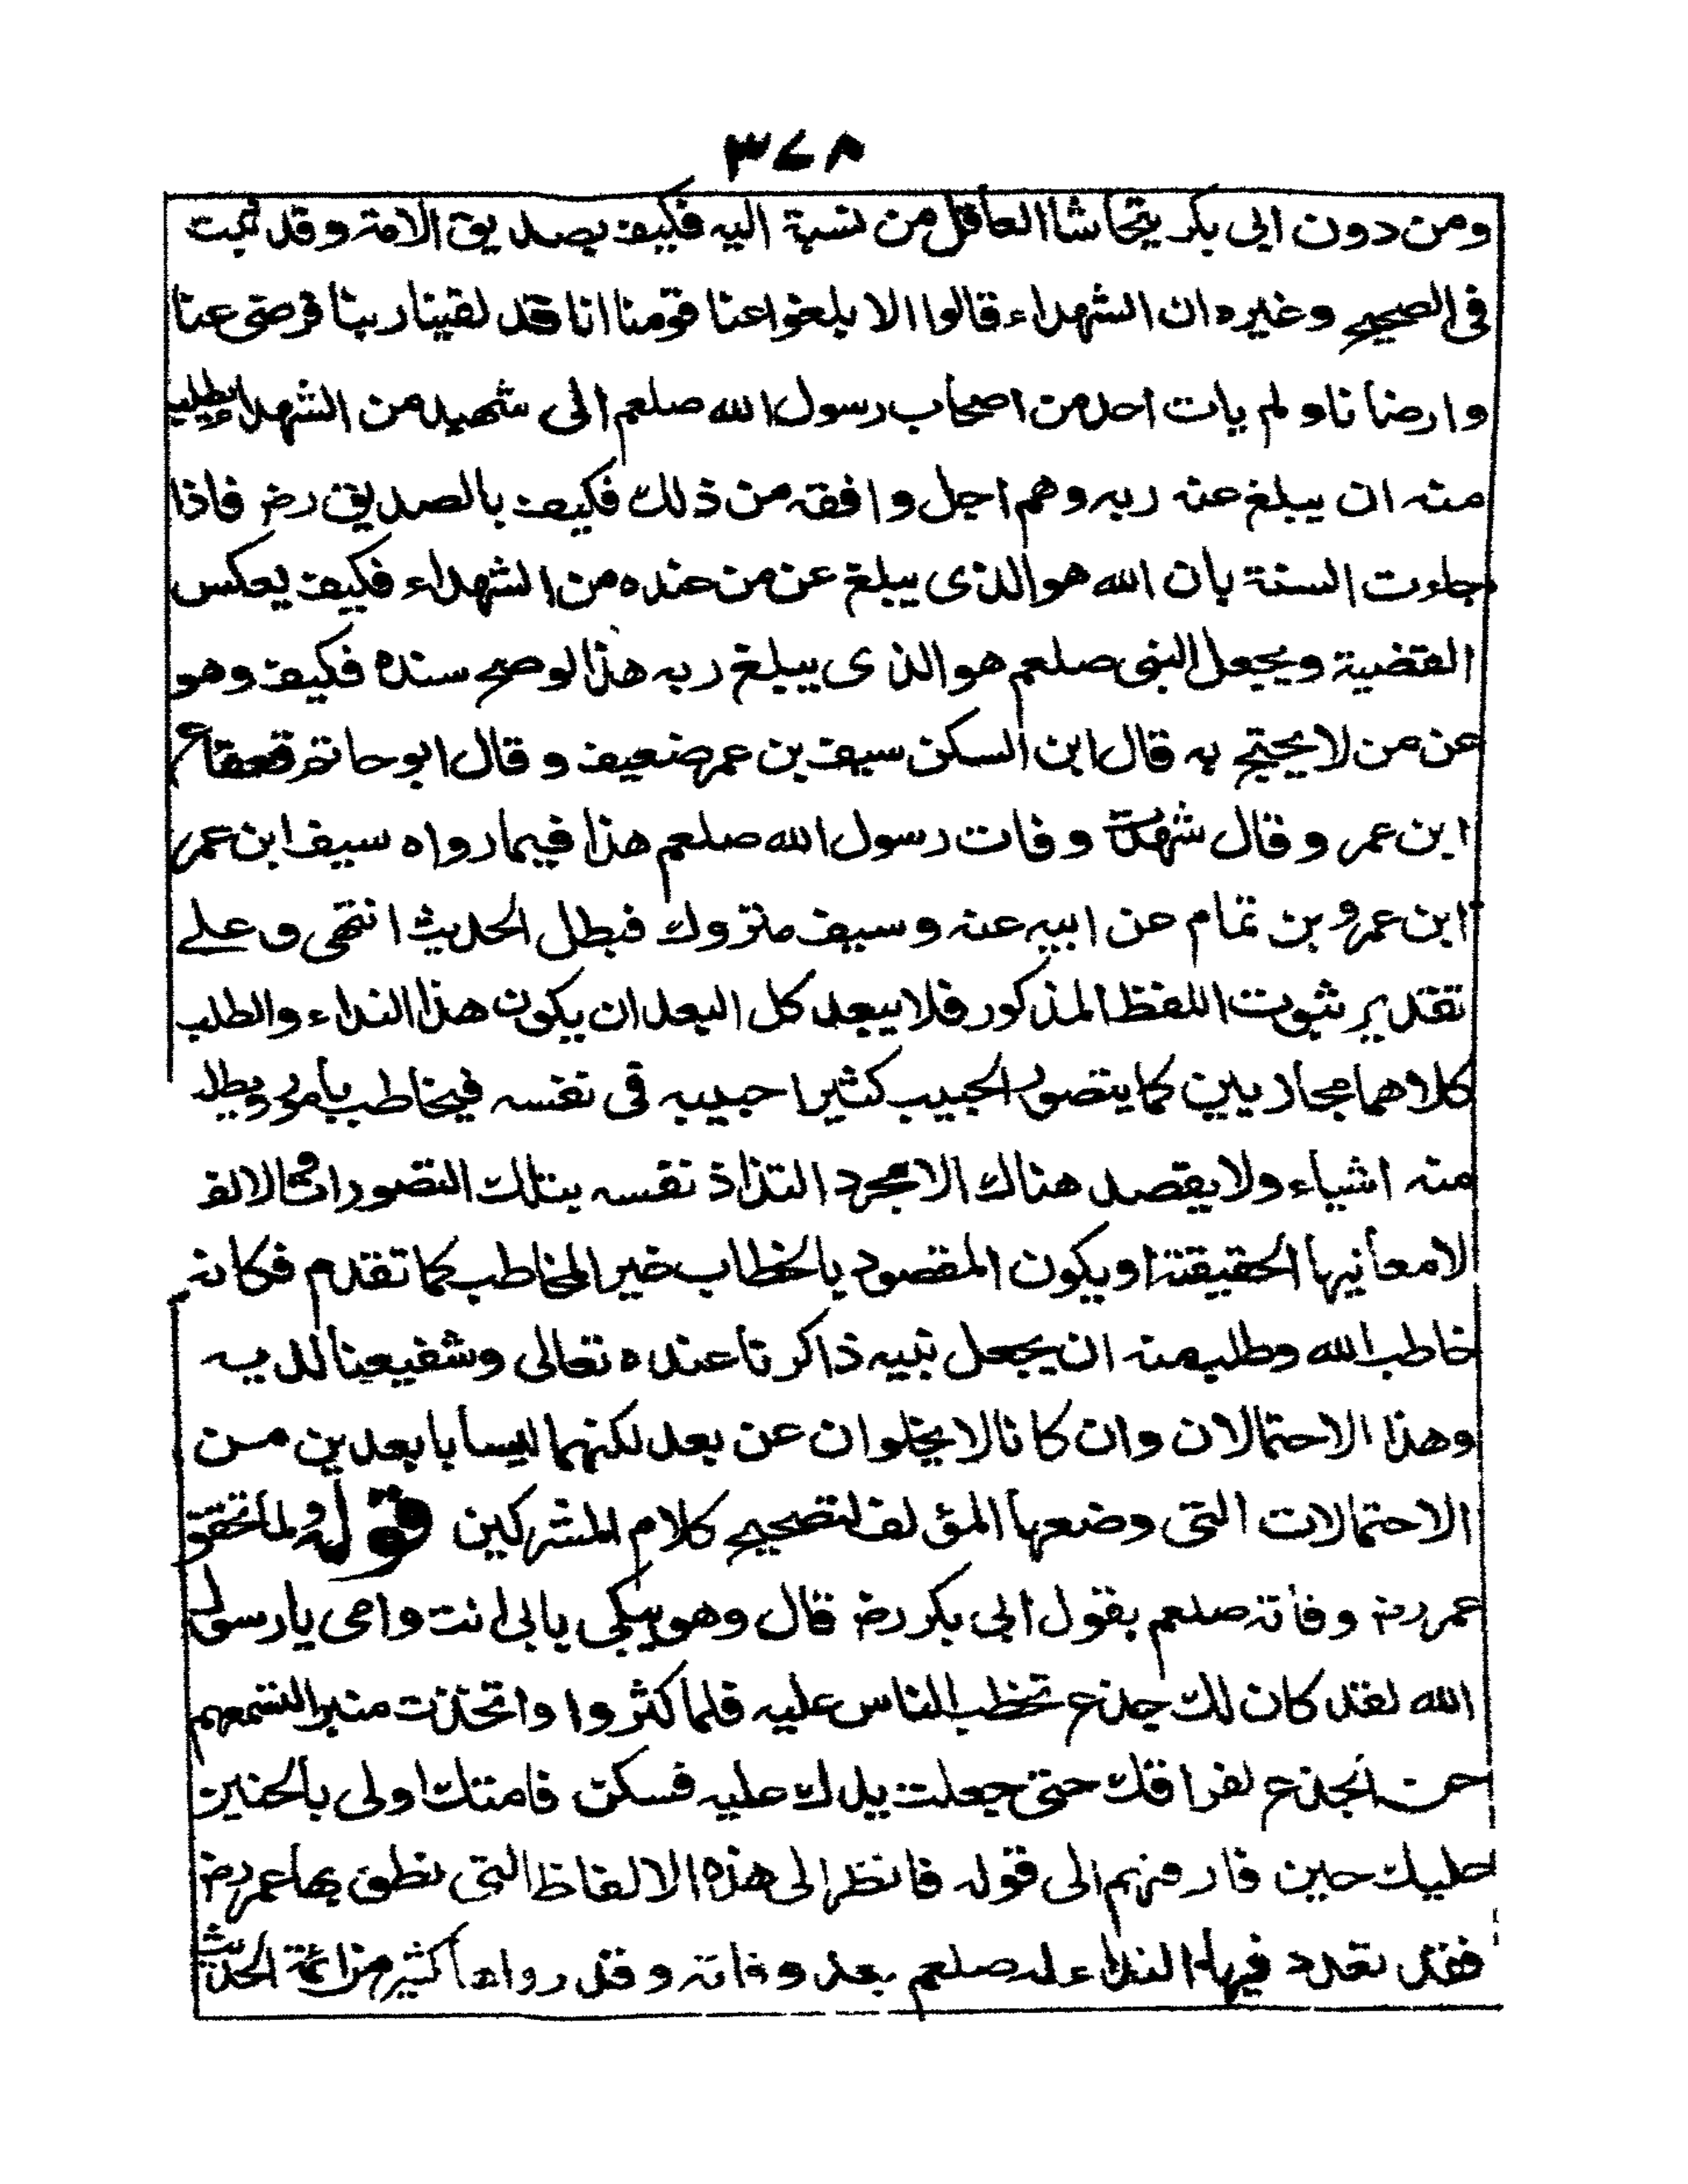 ٣٧٨
ومن دون ابى بكر يتحاشا العاقل من نسبة اليه فكيف بصديق الامة وقد ثبت
فى الصحيح وغيره ان الشهداء قالوا الا بلغوا عنا قومنا انا قد لقينا ربنا فرضى عنا
وارضانا ولم يات احد من اصحاب رسول الله صلعم الى شهيد من الشهداء يطلب
منه ان يبلغ عنه ربه وهم اجل وافقه من ذلك فكيف بالصديق رض فاذا
جاءت السنة بان الله هو الذى يبلغ عن من عنده من الشهداء فكيف يعكس
القضية ويجعل النبى صلعم هو الذى يبلغ ربه هذا لو صح سنده فكيف وهو
عن من لا يحتج به قال ابن السكن سيف بن عمر ضعيف وقال ابو حاتم قعقاع
ابن عمر وقال شهدت وفات رسول الله صلعم هذا فيما رواه سيف ابن عمر
ابن عمرو بن تمام عن ابيه عنه وسيف متروك فبطل الحديث انتهى وعلے
تقدير ثبوت اللفظ المذكور فلا يبعد كل البعد ان يكون هذا النداء والطلب
كلاهما مجازيين كما يتصور الحبيب كثيرا حبيبه فى نفسه فيخاطب بأمور ويطلب
منه اشياء ولا يقصد هناك الا مجرد التذاذ نفسه بتلك التصورات والالفـ
لامعانيها الحقيقة او يكون المقصود بالخطاب غير المخاطب كما تقدم فكانه
خاطب الله وطلب منه ان يجعل نبيه ذاكرنا عنده تعالى وشفيعنا لديه
وهذا الاحتمالان وان كانا لا يخلوان عن بعد لكنهما ليسا بابعدين من
الاحتمالات التى وضعها المؤلف لتصحيح كلام المشركين قوله ولما تحقق
عمر رض وفاته صلعم بقول ابى بكر رض قال وهو يبكى بابى انت وامى يا رسول
الله لقد كان لك جذع تخطب الناس عليه فلما كثروا واتخذت منبرا لتسمعهم
حن الجذع لفراقك حتى جعلت يدك عليه فسكن فامتك اولى بالحنين
عليك حين فارقتهم الى قوله فانظر الى هذه الالفاظ التى نطق بها عمر رض
فقد تعدد فيها النداء له صلعم بعد وفاته وقد رواها كثير من ائمة الحديث